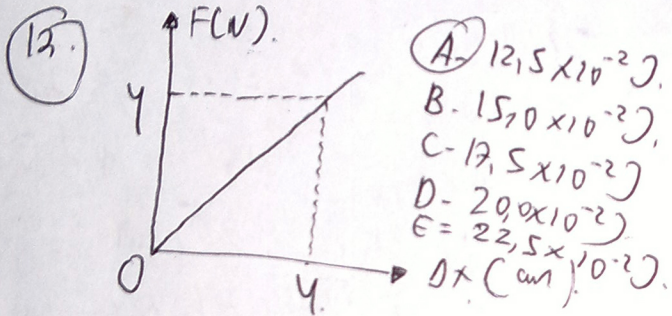 12.
F(N).
Y
O
Y.
Δx (cm).
A- 12,5x10⁻² J.
B- 15,0x10⁻² J.
C- 17,5x10⁻² J
D- 20,0x10⁻² J
E= 22,5x10⁻² J.